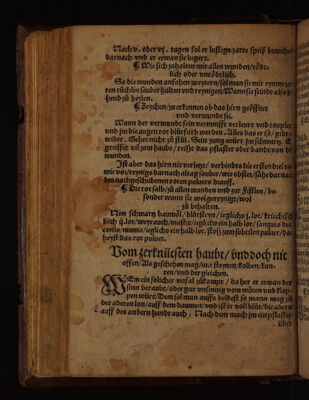 Nach v. ober vj. tagen sol er lustige zarte speiß brauchen
darnach vnd er etwan sie begert.
¶ Wie sich zuhalten mit allen wunden / tödt-
lich oder vntödtlich.
So die wunden anfahen zu eytern / sol man sie mit eynem zar
ten tüchlin sauber halten vnd reynigen / Wann sie seindt als
hend zu heylen.
¶ Zeychen / zu erkennen ob das hirn geöffnet
vnd verwundt sei.
Wann der verwundt sein vernunfft verleurt vnd
vnd jm die augen rot blutfarb werden. Alles das er ist / gibt er
wider. Gehet nicht zu stůl. Sein zung würt jm schwartz. Er
greifft vil zum haubt / reißt das pflaster oder bandt von der
wunden.
Ist aber das hirn nit verletzt / verbindts die ersten drei tag
wie vor / reynigs darnach alltag zwier / wie obstet / sähe darnach
des nachgeschribenen roten puluers drauff.
¶ Die rot salb / zu allen wunden vnd zur Fistlen / be-
sonder wann sie wol gereynigt / wol
zu behalten.
Nim schwartz baumöl / blůtsteyn / ieglichs j. lot / kriechisch
bech ij. lot / weyrauch / mastix / ieglichs ein halb lot / sanguis dra
conis / mumie / ieglichs ein halb lot / stoß zum subtilen puluer / das
heyst das rot puluer.
Vom zerknütschten haubt / vnd doch nit
offen / Als geschehen mag / mit steynen / kolben / kan-
ten / vnd der gleichen.
WEm ein solicher vnfal zukompt / da her er etwan der
sinn beraubt / oder gar vnsinnig vom wüten vnd klop-
pen würt / Dem sol man auffs beldest so man mag
der aderen lon / auff dem daumen / vnd ist er voll blůt / die adern
auff des andern hands auch. Nach dem mach jm ein pflaster
über